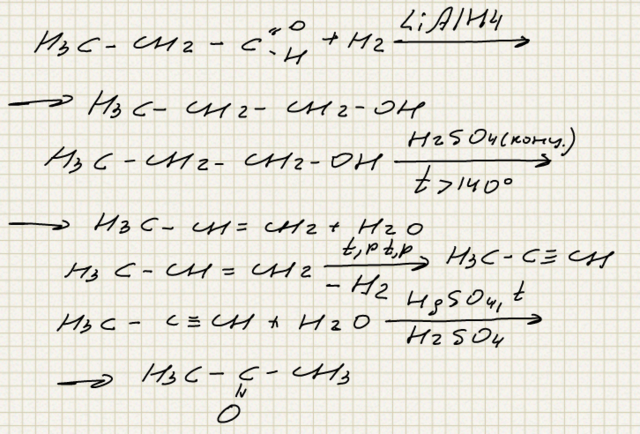 H3C - CH2 - C =O -H + H2 LiAlH4 →
→ H3C - CH2 - CH2 - OH
H3C - CH2 - CH2 - OH H2SO4(конц.) t>140° →
→ H3C - CH = CH2 + H2O
H3C - CH = CH2 t,p t,p → -H2 H3C - C ≡ CH
H3C - C ≡ CH + H2O HgSO4, t → H2SO4
→ H3C - C - CH3
=
O